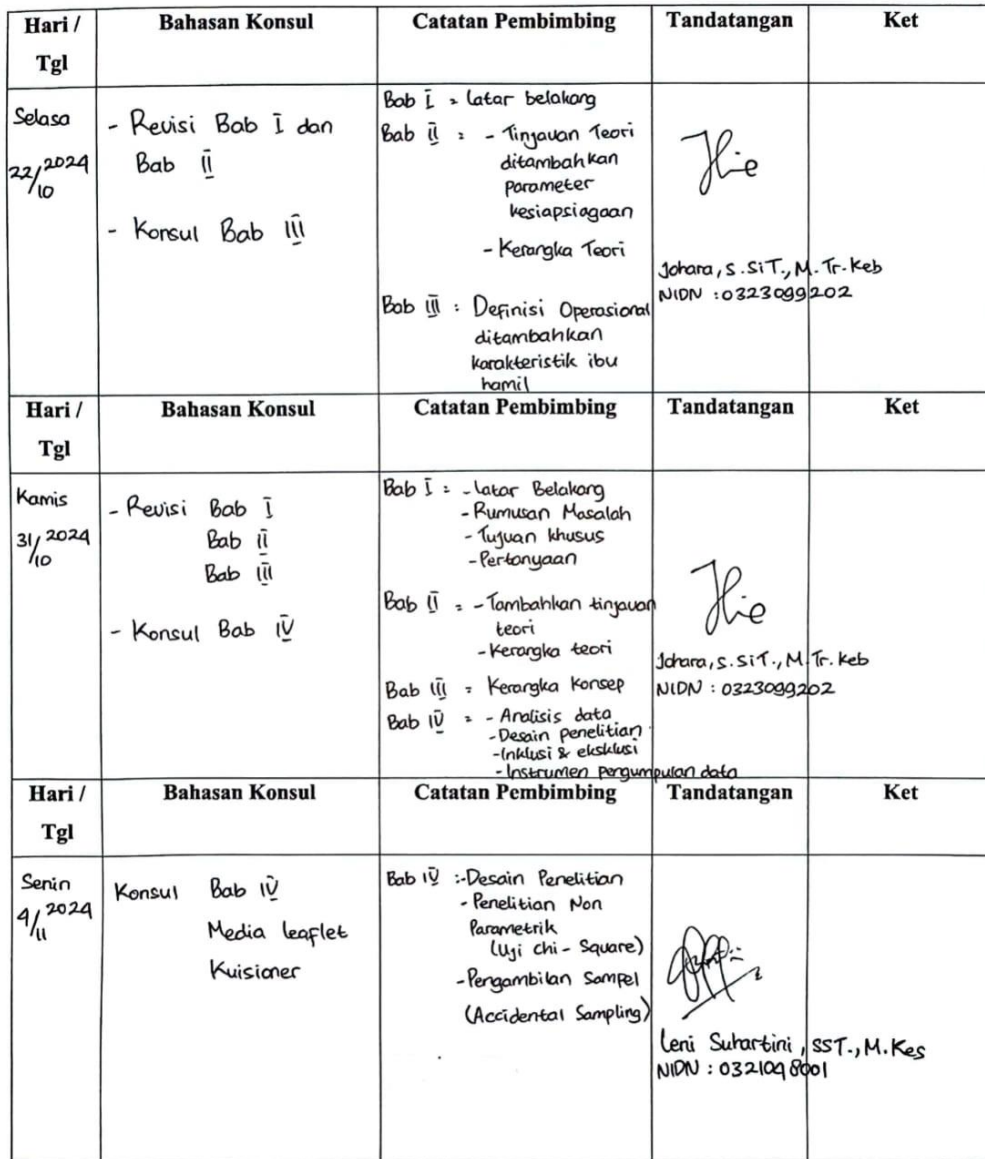 Hari / Bahasan Konsul Catatan Pembimbing Tandatangan Ket
Tgl
Selasa
22/10 2024
- Revisi Bab I dan
Bab II
- Konsul Bab III
Bab I = Latar belakang
Bab II = - Tinjauan Teori
ditambahkan
parameter
kesiapsiagaan
- Kerangka Teori
Bab III : Definisi Operasional
ditambahkan
karakteristik ibu
hamil
Johara, S.SiT., M.Tr.Keb
NIDN : 0323099202
Hari / Bahasan Konsul Catatan Pembimbing Tandatangan Ket
Tgl
Kamis
31/10 2024
- Revisi Bab I
Bab II
Bab III
- Konsul Bab IV
Bab I = - Latar Belakang
- Rumusan Masalah
- Tujuan khusus
- Pertanyaan
Bab II = - Tambahkan tinjauan
teori
- Kerangka teori
Bab III = Kerangka Konsep
Bab IV = - Analisis data
- Desain penelitian
- Inklusi & eksklusi
- Instrumen pengumpulan data
Johara, S.SiT., M.Tr.Keb
NIDN : 0323099202
Hari / Bahasan Konsul Catatan Pembimbing Tandatangan Ket
Tgl
Senin
4/11 2024
Konsul Bab IV
Media leaflet
Kuisioner
Bab IV :- Desain Penelitian
- Penelitian Non
Parametrik
(Uji Chi - Square)
- Pengambilan Sampel
(Accidental Sampling)
Leni Suhartini, SST., M.Kes
NIDN : 0321098001